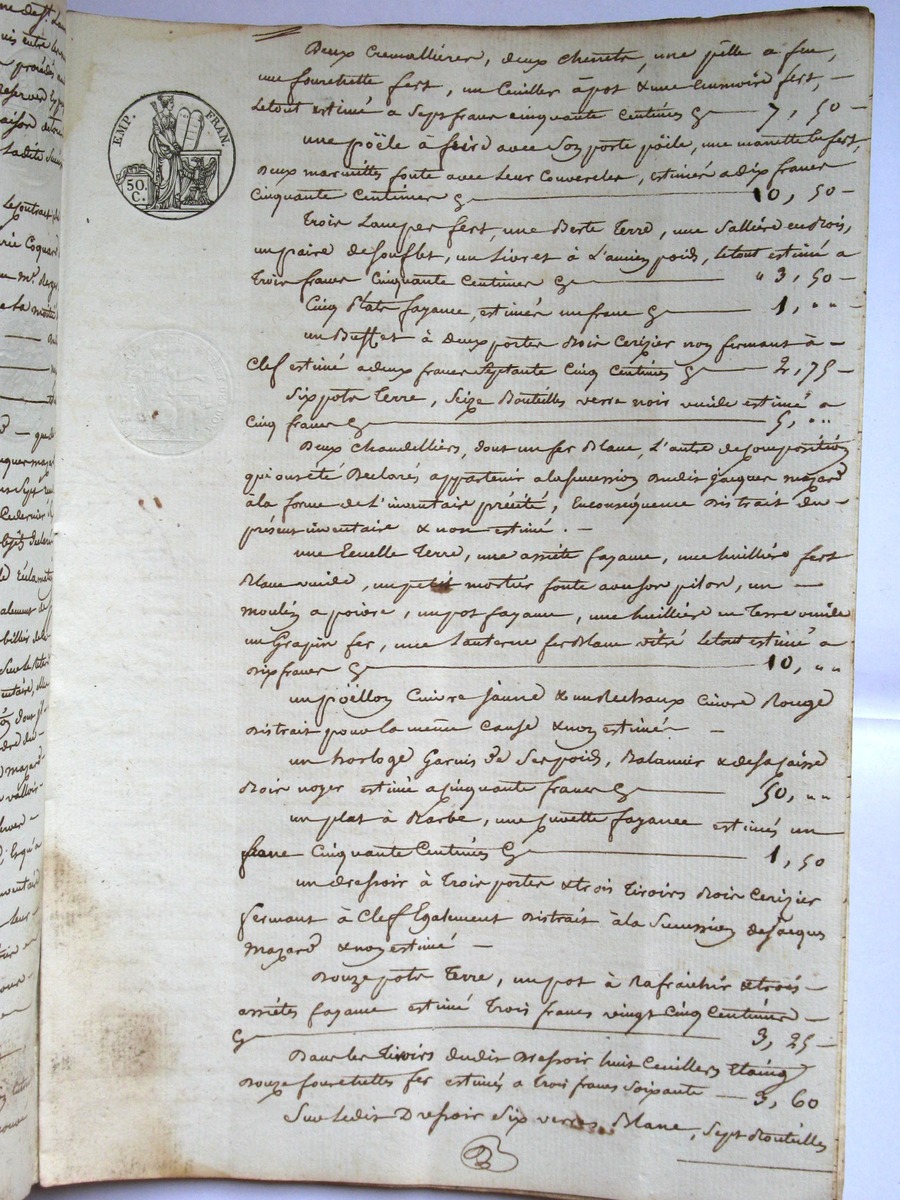 EMP. FRAN.
50. C.
Deux Cremallières, deux chenets, une pêlle a feu,
une fourchette fert, un Ceuiller à pot & une Ecumoire fert, —
Letout estimé a Sept francs cinquante Centimes — 7, 50 —
une pöële à frire avec Son porte pöële, une manette en fert,
Deux marmittes fonte avec Leur Couvercles, estimés a dix francs
Cinquante Centimes — 10, 50 —
Trois Lampes fert, une Berte Terre, une Sallière en Bois,
un paire de Souflet, un Livret à L'ancien poids, Letout estimé a
Trois francs Cinquante Centimes — " 3, 50 —
Cinq Plats fayance, estimés un franc — 1, " " —
un Buffet à deux portes Bois Cerizier non fermant à —
Clef estimé a deux francs Septante Cinq Centimes — 2, 75 —
Six pots Terre, Seize Bouteilles verre noir vuide estimé a
Cinq francs — 5, " "
Deux chandelliers, dont un fer Blanc, L'autre de Composition
qui ont été Declarés appartenir a la Succession dudit Jacques mazard
à la forme de L'inventaire précité, En conséquence Distrait du —
présent inventaire & non estimé. —
une Ecuelle Terre, une assiéte fayance, une huillière fert
Blanc vuide, un petit mortier fonte avec son pilon, un —
moulin a poivre, un pot fayance, une huillière en Terre vuide
un Grapin fer, une Lanterne fer Blanc vitré Letout estimé a
Dix francs — 10, " "
un pöëllon Cuivre jaune & un Rechaux Cuivre Rouge
Distrait pour la même cause & non estimés —
un horloge Garnis de Ses poids, Balancier & de sa Caisse
Bois noyer estimé a Cinquante francs — 50, " "
un plat à Barbe, une cuvette fayance estimés un
franc Cinquante Centimes — 1, 50
un Dressoir à Trois portes & trois Tiroirs Bois Cerizier
fermant à Clef Egalement Distrait à la Succession de Jacques
Mazard & non estimé —
Douze pots Terre, un pot à Rafraichir & trois —
assiétes fayance estimé Trois francs vingt Cinq Centimes —
— 3, 25 —
Dans les Tiroirs dudit Dressoir huit Ceuillers Etaing
Douze fourchettes fer estimés a Trois francs Soixante — 3, 60
Sur Ledit Dressoir Six verres Blanc, Sept Bouteilles